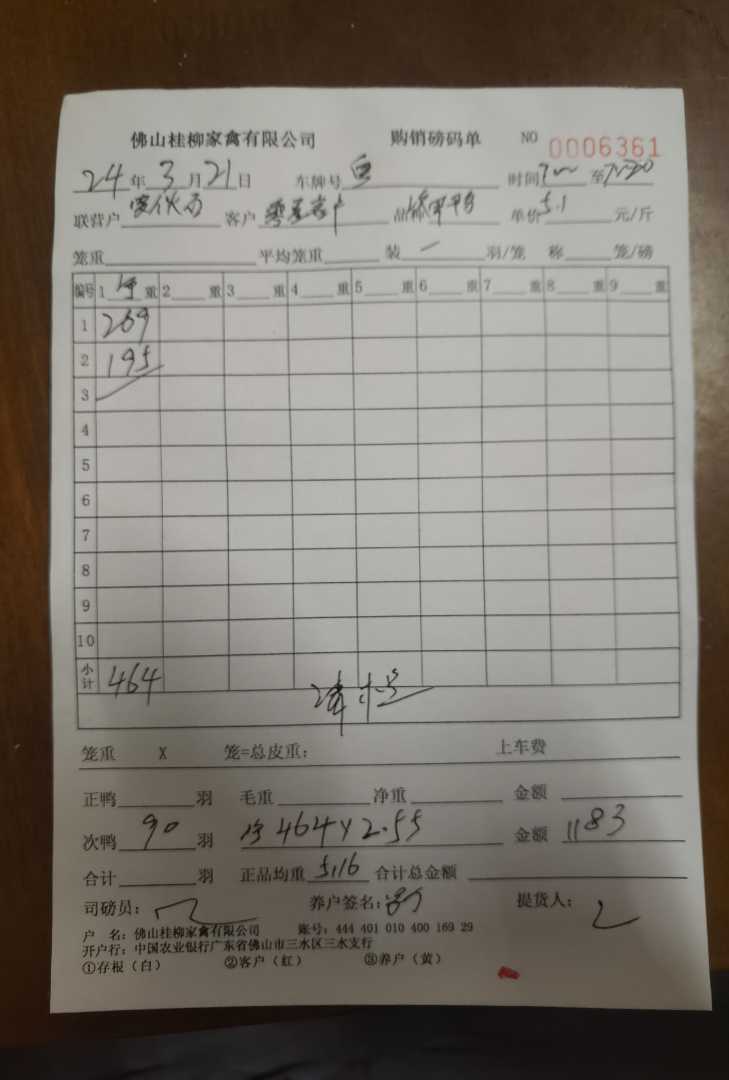 佛山桂柳家禽有限公司 购销磅码单 NO 0006361
24年3月21日 车牌号 时间 至
联营户 客户 品 单价5.1元/斤
笼重 平均笼重 装一羽/笼 称 笼/磅
编号 1 净 重 2 重 3 重 4 重 5 重 6 重 7 重 8 重 9 重
1 269
2 195
3
4
5
6
7
8
9
10
小计 464
笼重 X 笼=总皮重: 上车费
正鸭 羽 毛重 净重 金额
次鸭 90 羽 净464×2.55 金额 1183
合计 羽 正品均重 5.16 合计总金额
司磅员: 养户签名: 提货人:
户 名: 佛山桂柳家禽有限公司 账号: 444 401 010 400 169 29
开户行: 中国农业银行广东省佛山市三水区三水支行
①存根（白） ②客户（红） ③养户（黄）